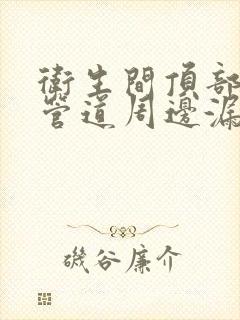 衛生間頂部
管道周邊漏
磯谷廉介